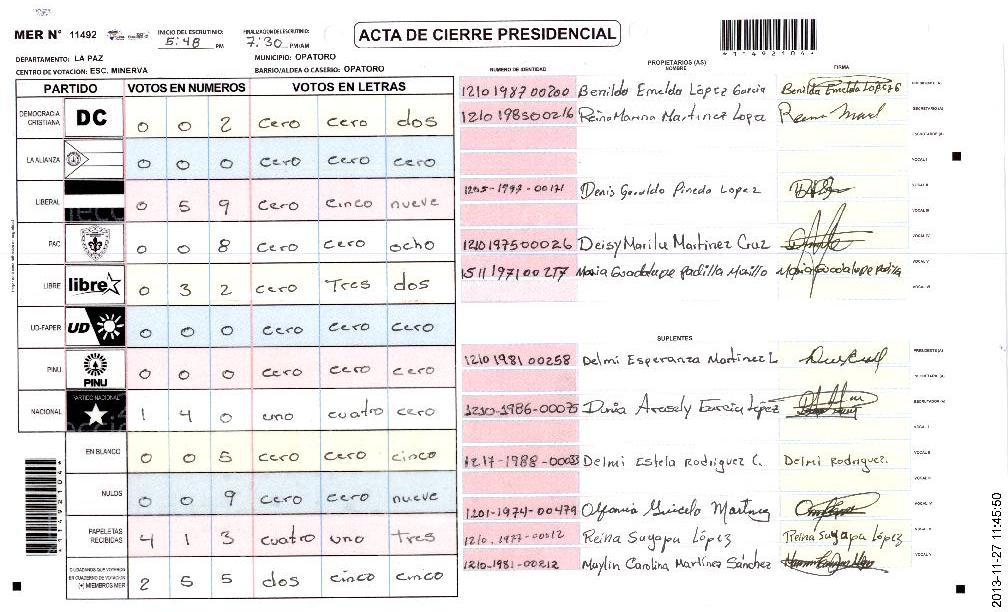 MER N° 11492
INICIO DEL ESCRUTINIO: 5:48 PM
FINALIZACION DEL ESCRUTINIO: 7:30 PM/AM
ACTA DE CIERRE PRESIDENCIAL
114921041
DEPARTAMENTO: LA PAZ
MUNICIPIO: OPATORO
CENTRO DE VOTACION: ESC. MINERVA
BARRIO/ALDEA O CASERIO: OPATORO
PARTIDO VOTOS EN NUMEROS VOTOS EN LETRAS
DEMOCRACIA CRISTIANA DC 0 0 2 cero cero dos
LA ALIANZA 0 0 0 cero cero cero
LIBERAL 0 5 9 cero cinco nueve
PAC 0 0 8 cero cero ocho
LIBRE libre 0 3 2 cero Tres dos
UD-FAPER UD 0 0 0 cero cero cero
PINU PINU 0 0 0 cero cero cero
NACIONAL PARTIDO NACIONAL 1 4 0 uno cuatro cero
EN BLANCO 0 0 5 cero cero cinco
NULOS 0 0 9 cero cero nueve
PAPELETAS RECIBIDAS 4 1 3 cuatro uno tres
CIUDADANOS QUE VOTARON EN CUADERNO DE VOTACION (+) MIEMBROS MER 2 5 5 dos cinco cinco
PROPIETARIOS (AS)
NUMERO DE IDENTIDAD NOMBRE FIRMA
1210 1987 00200 Benilda Emelda López Garcia Benilda Emelda López G
1210 1985 00216 Reina Marina Martinez Lopez
SECRETARIO (A)
ESCRUTADOR (A)
VOCAL I
1205-1997-00171 Denis Geraldo Pineda Lopez VOCAL II
VOCAL III
1210 1975 00026 Deisy Marilu Martinez Cruz VOCAL IV
1511 1971 00277 Maria Guadalupe Padilla Murillo Maria Guadalupe Padilla VOCAL V
VOCAL VI
SUPLENTES
1210 1981 00258 Delmi Esperanza Martinez L PRESIDENTE (A)
SECRETARIO (A)
1210-1986-00075 Dunia Aracely Garcia López ESCRUTADOR (A)
VOCAL I
1217-1988-00033 Delmi Estela Rodriguez C. Delmi Rodriguez. VOCAL II
1201-1974-00479 Martinez VOCAL IV
1210, 1977-00012 Reina Suyapa López Reina Suyapa López
1210-1981-00212 Maylin Carolina Martínez Sánchez
114921041
2013-11-27 11:45:50